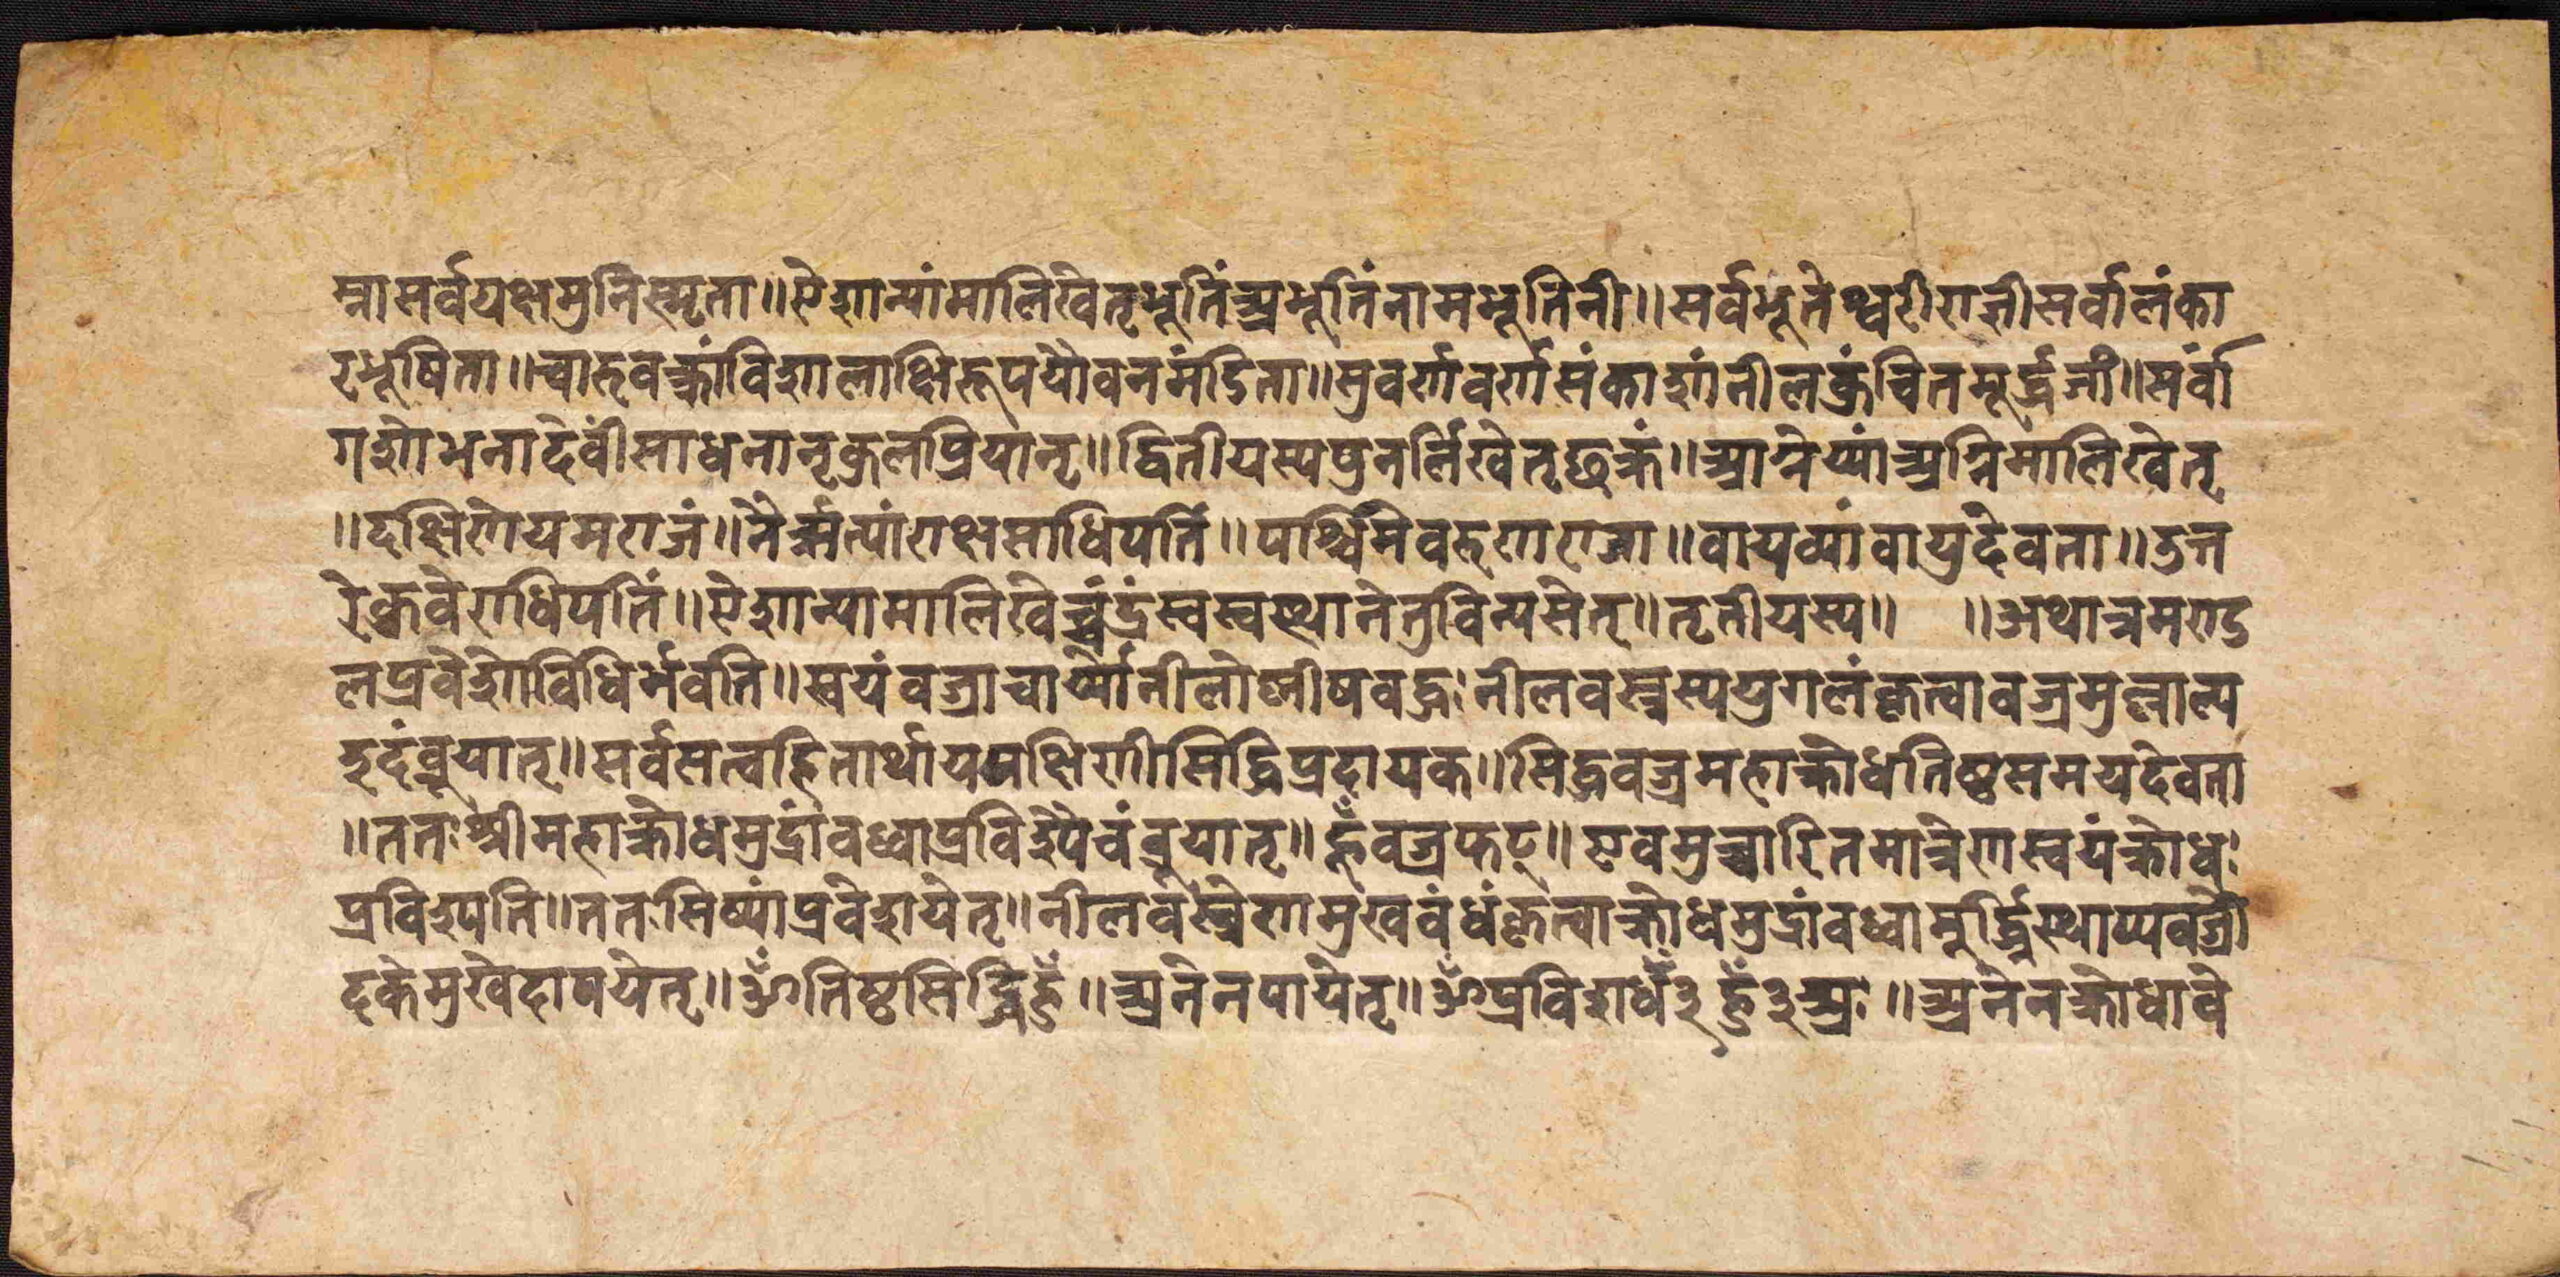 म्नासर्वयक्षमुनिस्मृता॥ऐशान्यांमालिखेत्भूतिंअभूतिंनामभूतिनी॥सर्वभूतेश्वरीराज्ञीसर्वालंका
रभूषिता॥चारुवक्त्रांविशालाक्षिरूपयौवनमंडिता॥सुवर्णवर्णसंकाशांनीलकुंचितमूर्द्धजीं॥सर्वां
गशोभनादेवींसाधनानृकुलप्रियान्॥द्वितीयस्यपुनर्लिखेत्छक्रं॥आग्नेय्यांअग्निमालिखेत्
॥दक्षिणेयमराजं॥नैर्ऋत्यांराक्षसाधिपतिं॥पश्चिमेवरुणराजा॥वायव्यांवायुदेवता॥उत्त
रेकुवेराधिपतिं॥ऐशान्यामालिखेच्चंद्रंस्वस्वस्थानेतुविन्यसेत्॥तृतीयस्य॥ ॥अथात्रमण्ड
लप्रवेशोविधिर्भवति॥स्वयंवज्राचार्य्योनीलोष्णीषवद्धःनीलवस्त्रस्ययुगलंकृत्वावज्रमुल्लाल्य
इदंव्रूयात्॥सर्वसत्वहितार्थाययक्षिणीसिद्धिप्रदायक॥सिद्धवज्रमहाक्रोधतिष्ठसमयदेवता
॥ततःश्रीमहाक्रोधमुद्रांवध्वाप्रविश्यैवंव्रूयात्॥हूँवज्रफट्॥एवमुच्चारितमात्रेणस्वयंक्रोधः
प्रविश्यति॥ततःसिष्यांप्रवेशयेत्॥नीलवस्त्रेणमुखवंधंकृत्वाक्रोधमुद्रांवध्वामुर्द्ध्निस्थाप्यवज्रो
दकेमुखेदापयेत्॥ॐतिष्ठसिद्धिहूँ॥अनेनपायेत्॥ॐप्रविशधँ३हूँ३अः॥अनेनक्रोधावे